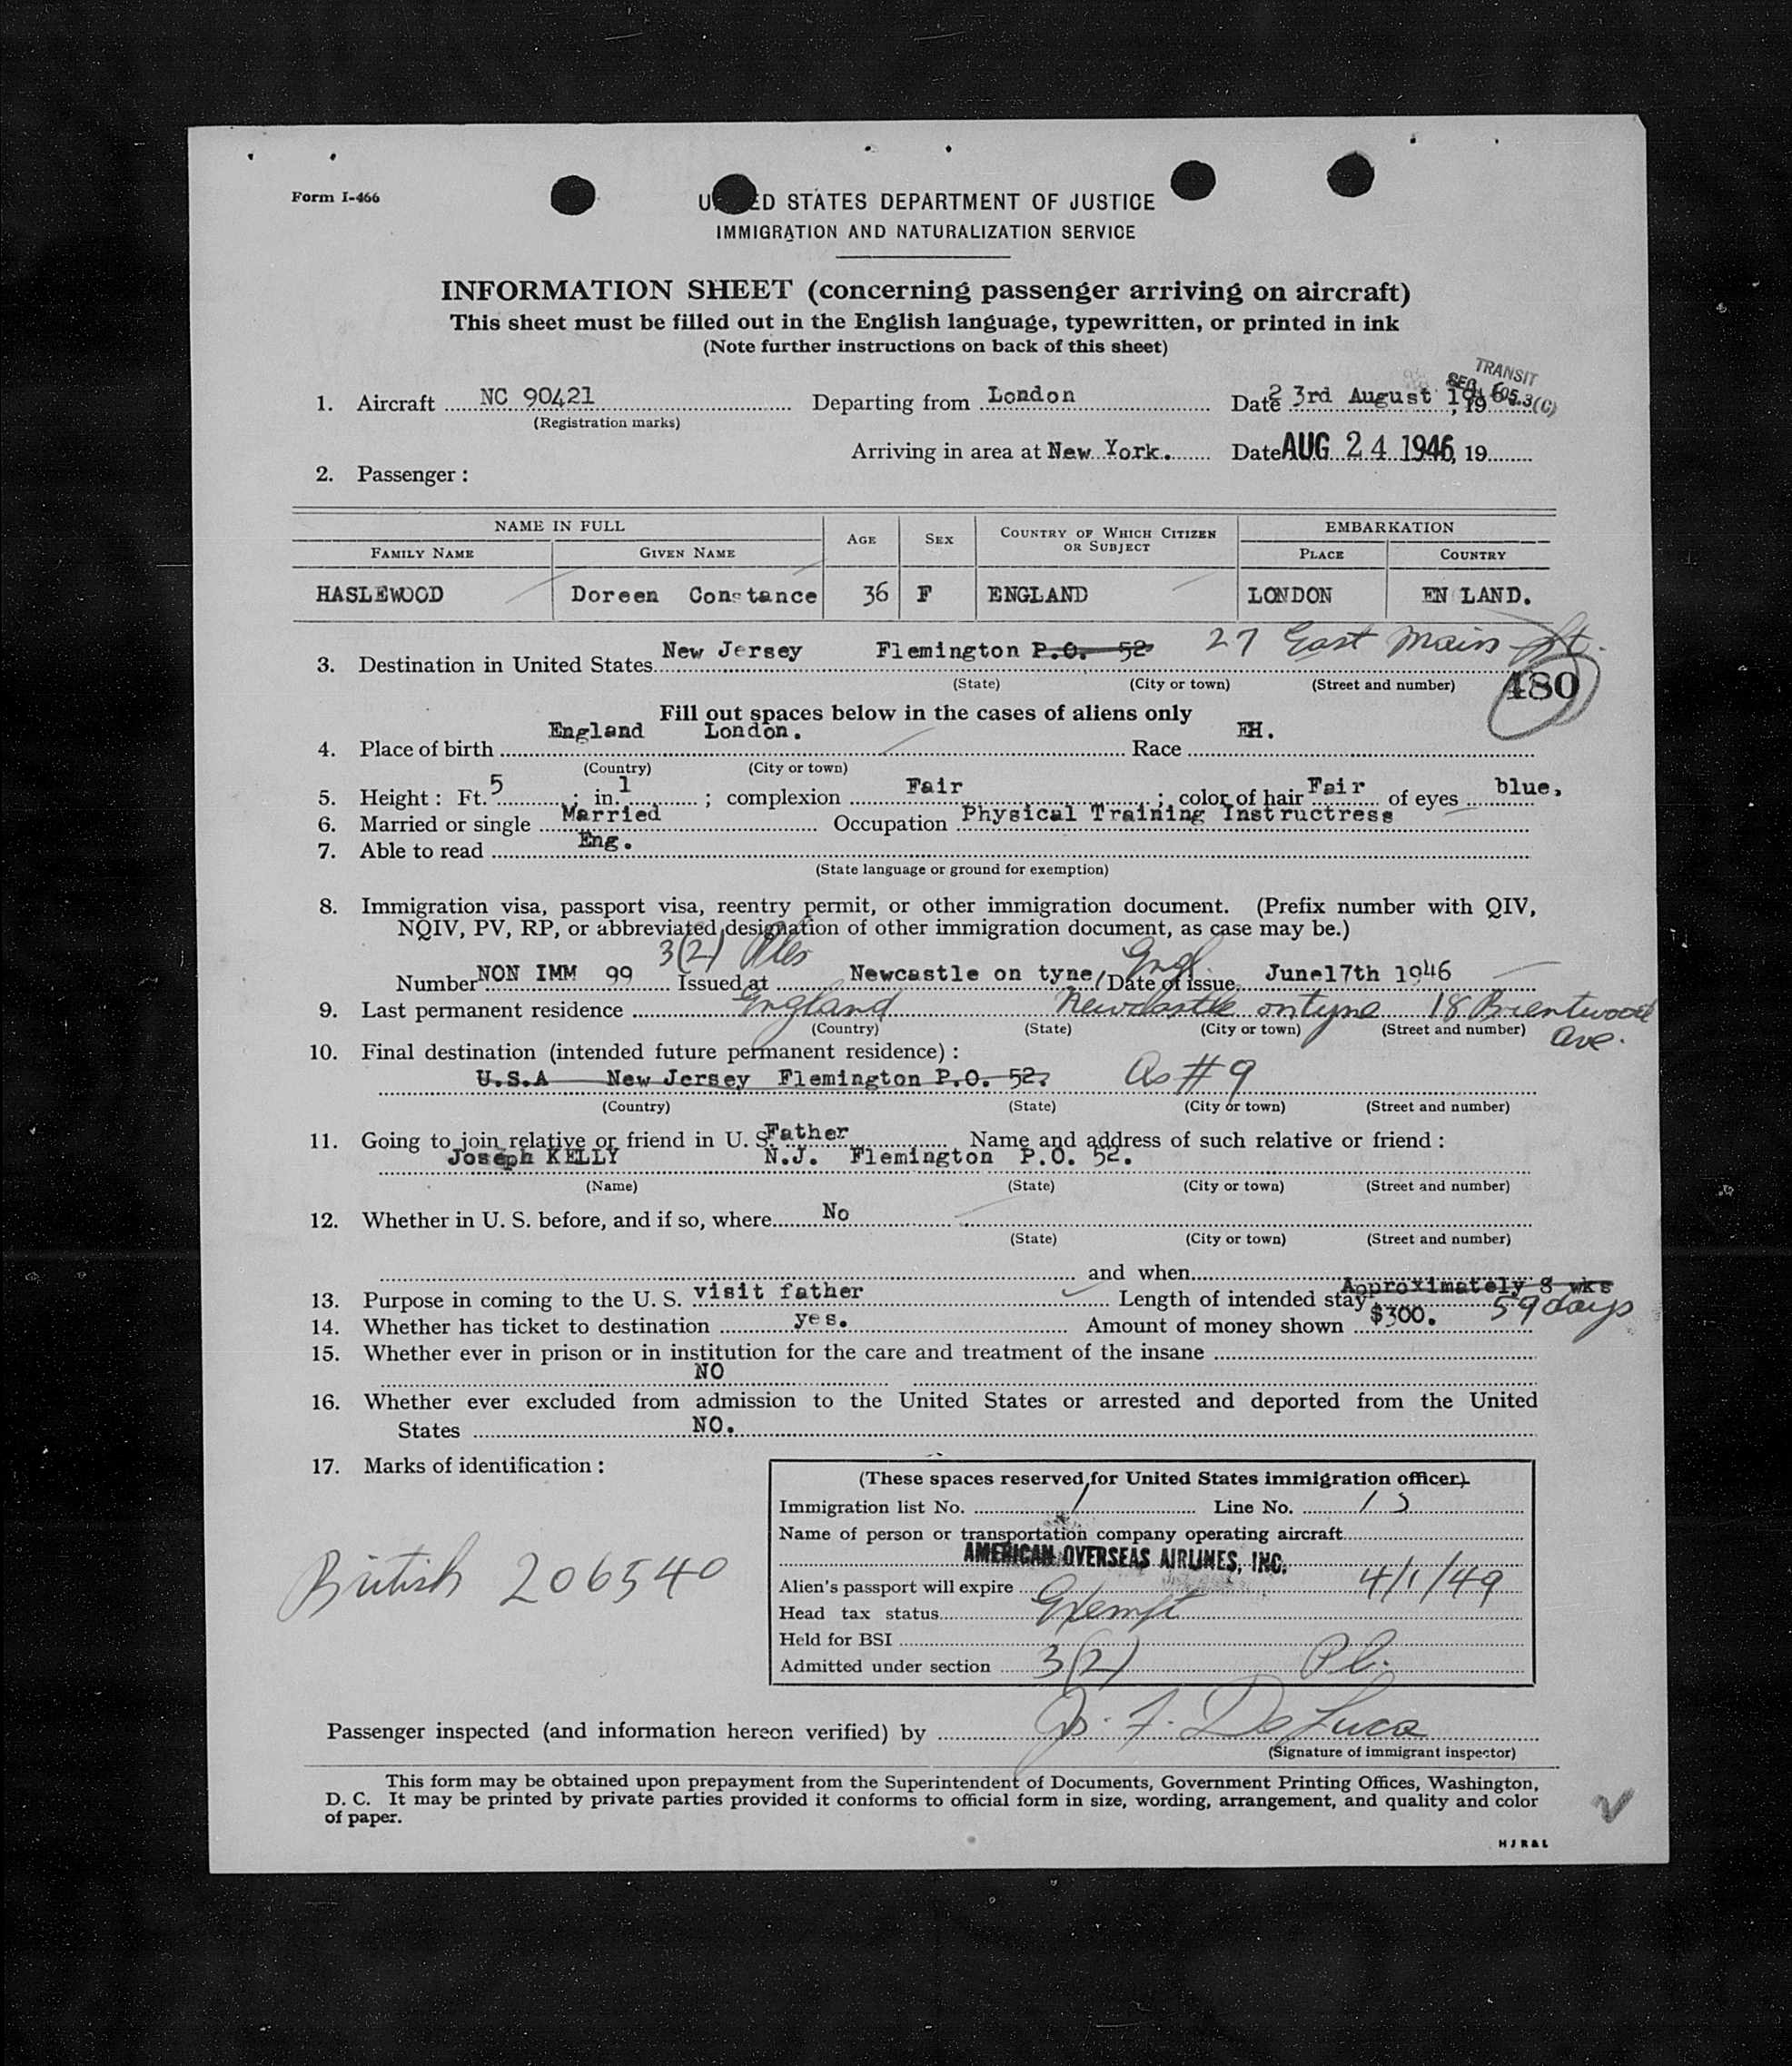 Form I-466
UNITED STATES DEPARTMENT OF JUSTICE
IMMIGRATION AND NATURALIZATION SERVICE
INFORMATION SHEET (concerning passenger arriving on aircraft)
This sheet must be filled out in the English language, typewritten, or printed in ink
(Note further instructions on back of this sheet)
TRANSIT
1. Aircraft NC 90421 Departing from London Date 23rd August 19
(Registration marks)
Arriving in area at New York. Date AUG 24 1946, 19
2. Passenger :
NAME IN FULL AGE SEX COUNTRY OF WHICH CITIZEN OR SUBJECT EMBARKATION
FAMILY NAME GIVEN NAME PLACE COUNTRY
HASLEWOOD Doreen Constance 36 F ENGLAND LONDON EN LAND.
3. Destination in United States New Jersey Flemington P.O. 52 27 East Main St.
(State) (City or town) (Street and number) 480
Fill out spaces below in the cases of aliens only
4. Place of birth England London. Race EH.
(Country) (City or town)
5. Height : Ft. 5 ; in. 1 ; complexion Fair ; color of hair Fair of eyes blue,
6. Married or single Married Occupation Physical Training Instructress
7. Able to read Eng.
(State language or ground for exemption)
8. Immigration visa, passport visa, reentry permit, or other immigration document. (Prefix number with QIV,
NQIV, PV, RP, or abbreviated designation of other immigration document, as case may be.)
3(2)
Number NON IMM 99 Issued at Newcastle on tyne, Engl. Date of issue June17th 1946
9. Last permanent residence England Newcastle on tyne 18 Brentwood Ave.
(Country) (State) (City or town) (Street and number)
10. Final destination (intended future permanent residence) :
U.S.A New Jersey Flemington P.O. 52. As #9
(Country) (State) (City or town) (Street and number)
11. Going to join relative or friend in U. S. Father Name and address of such relative or friend :
Joseph KELLY N.J. Flemington P.O. 52.
(Name) (State) (City or town) (Street and number)
12. Whether in U. S. before, and if so, where No
(State) (City or town) (Street and number)
and when
13. Purpose in coming to the U. S. visit father Length of intended stay Approximately 8 wks 59 days
14. Whether has ticket to destination yes. Amount of money shown $300.
15. Whether ever in prison or in institution for the care and treatment of the insane
NO
16. Whether ever excluded from admission to the United States or arrested and deported from the United
States NO.
17. Marks of identification :
British 206540
(These spaces reserved for United States immigration officer)
Immigration list No. 1 Line No. 13
Name of person or transportation company operating aircraft
AMERICAN OVERSEAS AIRLINES, INC.
Alien's passport will expire 4/1/49
Head tax status Exempt
Held for BSI
Admitted under section 3(2) Pl.
Passenger inspected (and information hereon verified) by F. De Luca
(Signature of immigrant inspector)
This form may be obtained upon prepayment from the Superintendent of Documents, Government Printing Offices, Washington,
D. C. It may be printed by private parties provided it conforms to official form in size, wording, arrangement, and quality and color
of paper.
H J R & L